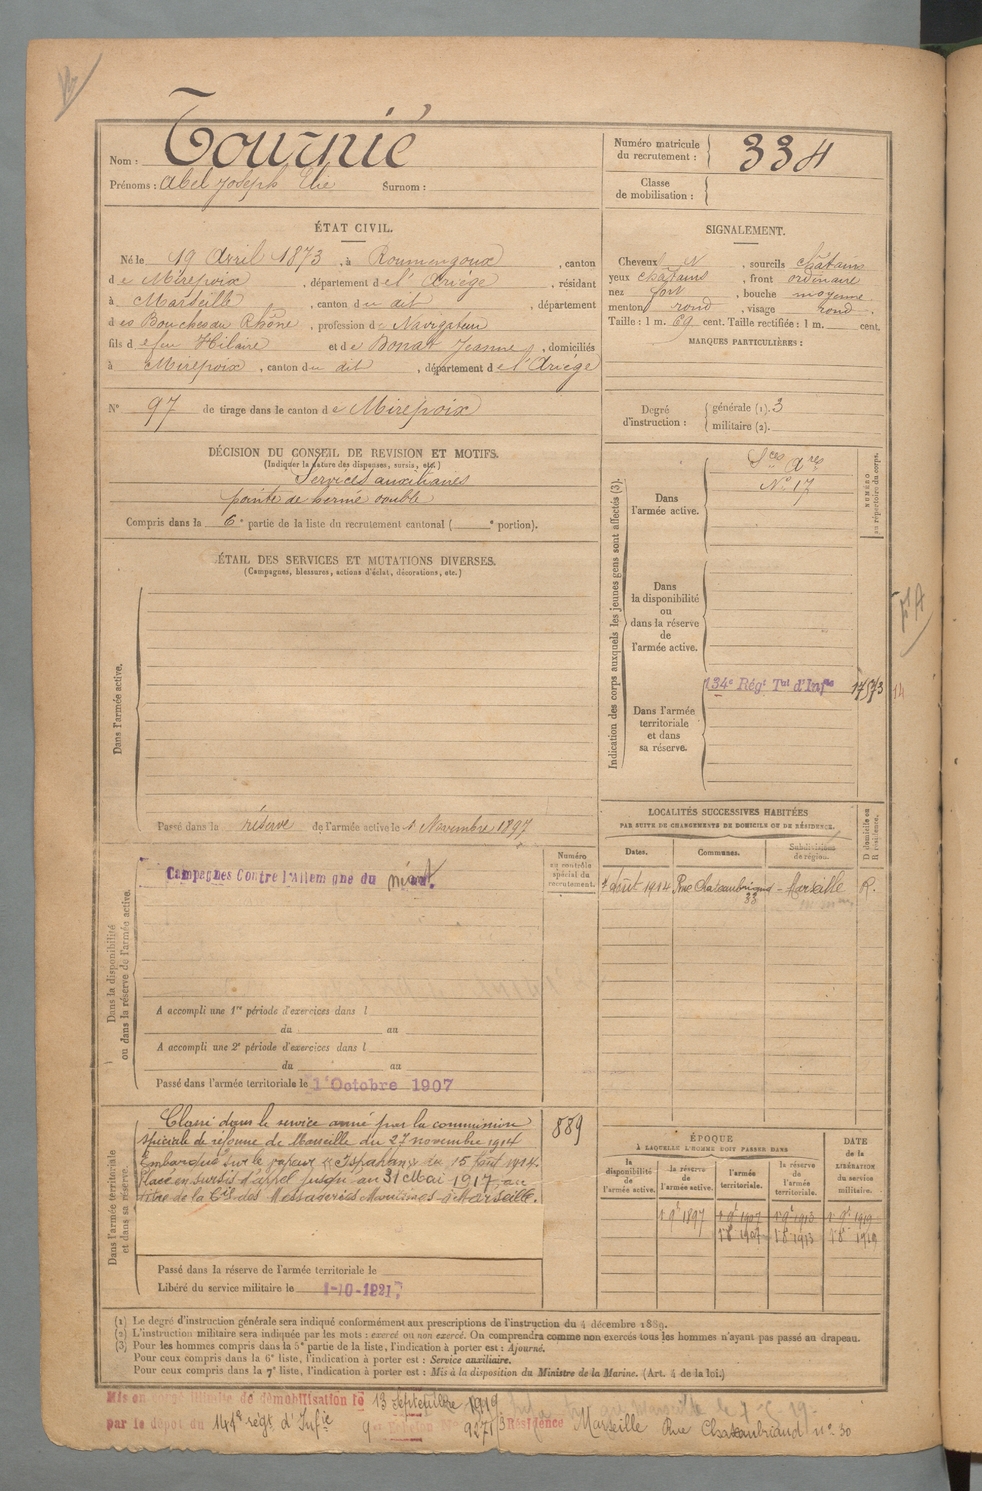 Nom : Tournié
Prénoms : Abel Joseph Elie Surnom :
Numéro matricule du recrutement : 334
Classe de mobilisation :
ÉTAT CIVIL.
Né le 19 Avril 1873, à Roumengoux, canton
de Mirepoix, département de l'Ariège, résidant
à Marseille, canton du dit, département
des Bouches du Rhône, profession de Navigateur
fils de feu Hilaire et de Bonat Jeanne, domiciliés
à Mirepoix, canton du dit, département de l'Ariège
N° 97 de tirage dans le canton de Mirepoix
SIGNALEMENT.
Cheveux N, sourcils châtains
yeux châtains, front ordinaire
nez fort, bouche moyenne
menton rond, visage rond.
Taille : 1 m. 69 cent. Taille rectifiée : 1 m. cent.
MARQUES PARTICULIÈRES :
Degré d'instruction : générale (1). 3
militaire (2).
DÉCISION DU CONSEIL DE REVISION ET MOTIFS.
(Indiquer la nature des dispenses, sursis, etc.)
Services auxiliaires
pointe de hernie double
Compris dans la 6e partie de la liste du recrutement cantonal ( e portion).
DÉTAIL DES SERVICES ET MUTATIONS DIVERSES.
(Campagnes, blessures, actions d'éclat, décorations, etc.)
Dans l'armée active.
Passé dans la réserve de l'armée active le 1 Novembre 1897
Indication des corps auxquels les jeunes gens sont affectés (3).
Dans l'armée active.
Sces Ares
N° 17
NUMÉRO au répertoire du corps.
Dans la disponibilité ou dans la réserve de l'armée active.
Dans l'armée territoriale et dans sa réserve.
134e Régt Tal d'Infie
LOCALITÉS SUCCESSIVES HABITÉES
PAR SUITE DE CHANGEMENTS DE DOMICILE OU DE RÉSIDENCE.
Dates. Communes. Subdivisions de région. D domicile ou R résidence.
août 1914 Rue Chateaubriand 33 - Marseille R.
Dans la disponibilité ou dans la réserve de l'armée active.
Numéro au contrôle spécial du recrutement.
Campagnes Contre l'Allemagne du néant.
A accompli une 1re période d'exercices dans l
du au
A accompli une 2e période d'exercices dans l
du au
Passé dans l'armée territoriale le 1er Octobre 1907
Dans l'armée territoriale et dans sa réserve.
Classé dans le service armé par la commission
spéciale de réforme de Marseille du 27 novembre 1914
889
Embarqué sur le vapeur "Ispahan" le 15 août 1914.
Placé en sursis d'appel jusqu'au 31 Mai 1917, au
titre de la Cie des Messageries Maritimes à Marseille.
Passé dans la réserve de l'armée territoriale le
Libéré du service militaire le 1-10-1921
ÉPOQUE
À LAQUELLE L'HOMME DOIT PASSER DANS
la disponibilité de l'armée active. la réserve de l'armée active. l'armée territoriale. la réserve de l'armée territoriale.
DATE de la LIBÉRATION du service militaire.
1 9e 1897 1 9e 1907 1 9e 1913 1 9e 1919
1 8e 1907 1 8e 1913 1 8e 1919
(1) Le degré d'instruction générale sera indiqué conformément aux prescriptions de l'instruction du 4 décembre 1889.
(2) L'instruction militaire sera indiquée par les mots : exercé ou non exercé. On comprendra comme non exercés tous les hommes n'ayant pas passé au drapeau.
(3) Pour les hommes compris dans la 5e partie de la liste, l'indication à porter est : Ajourné.
Pour ceux compris dans la 6e liste, l'indication à porter est : Service auxiliaire.
Pour ceux compris dans la 7e liste, l'indication à porter est : Mis à la disposition du Ministre de la Marine. (Art. 4 de la loi.)
Mis en congé illimité de démobilisation le 13 septembre 1919
par le dépôt du 141e régt d'Infie Résidence Marseille Rue Chateaubriand n° 30